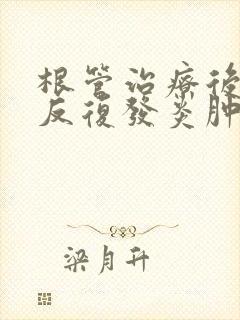 根管治療後
反復發炎肿
梁月升